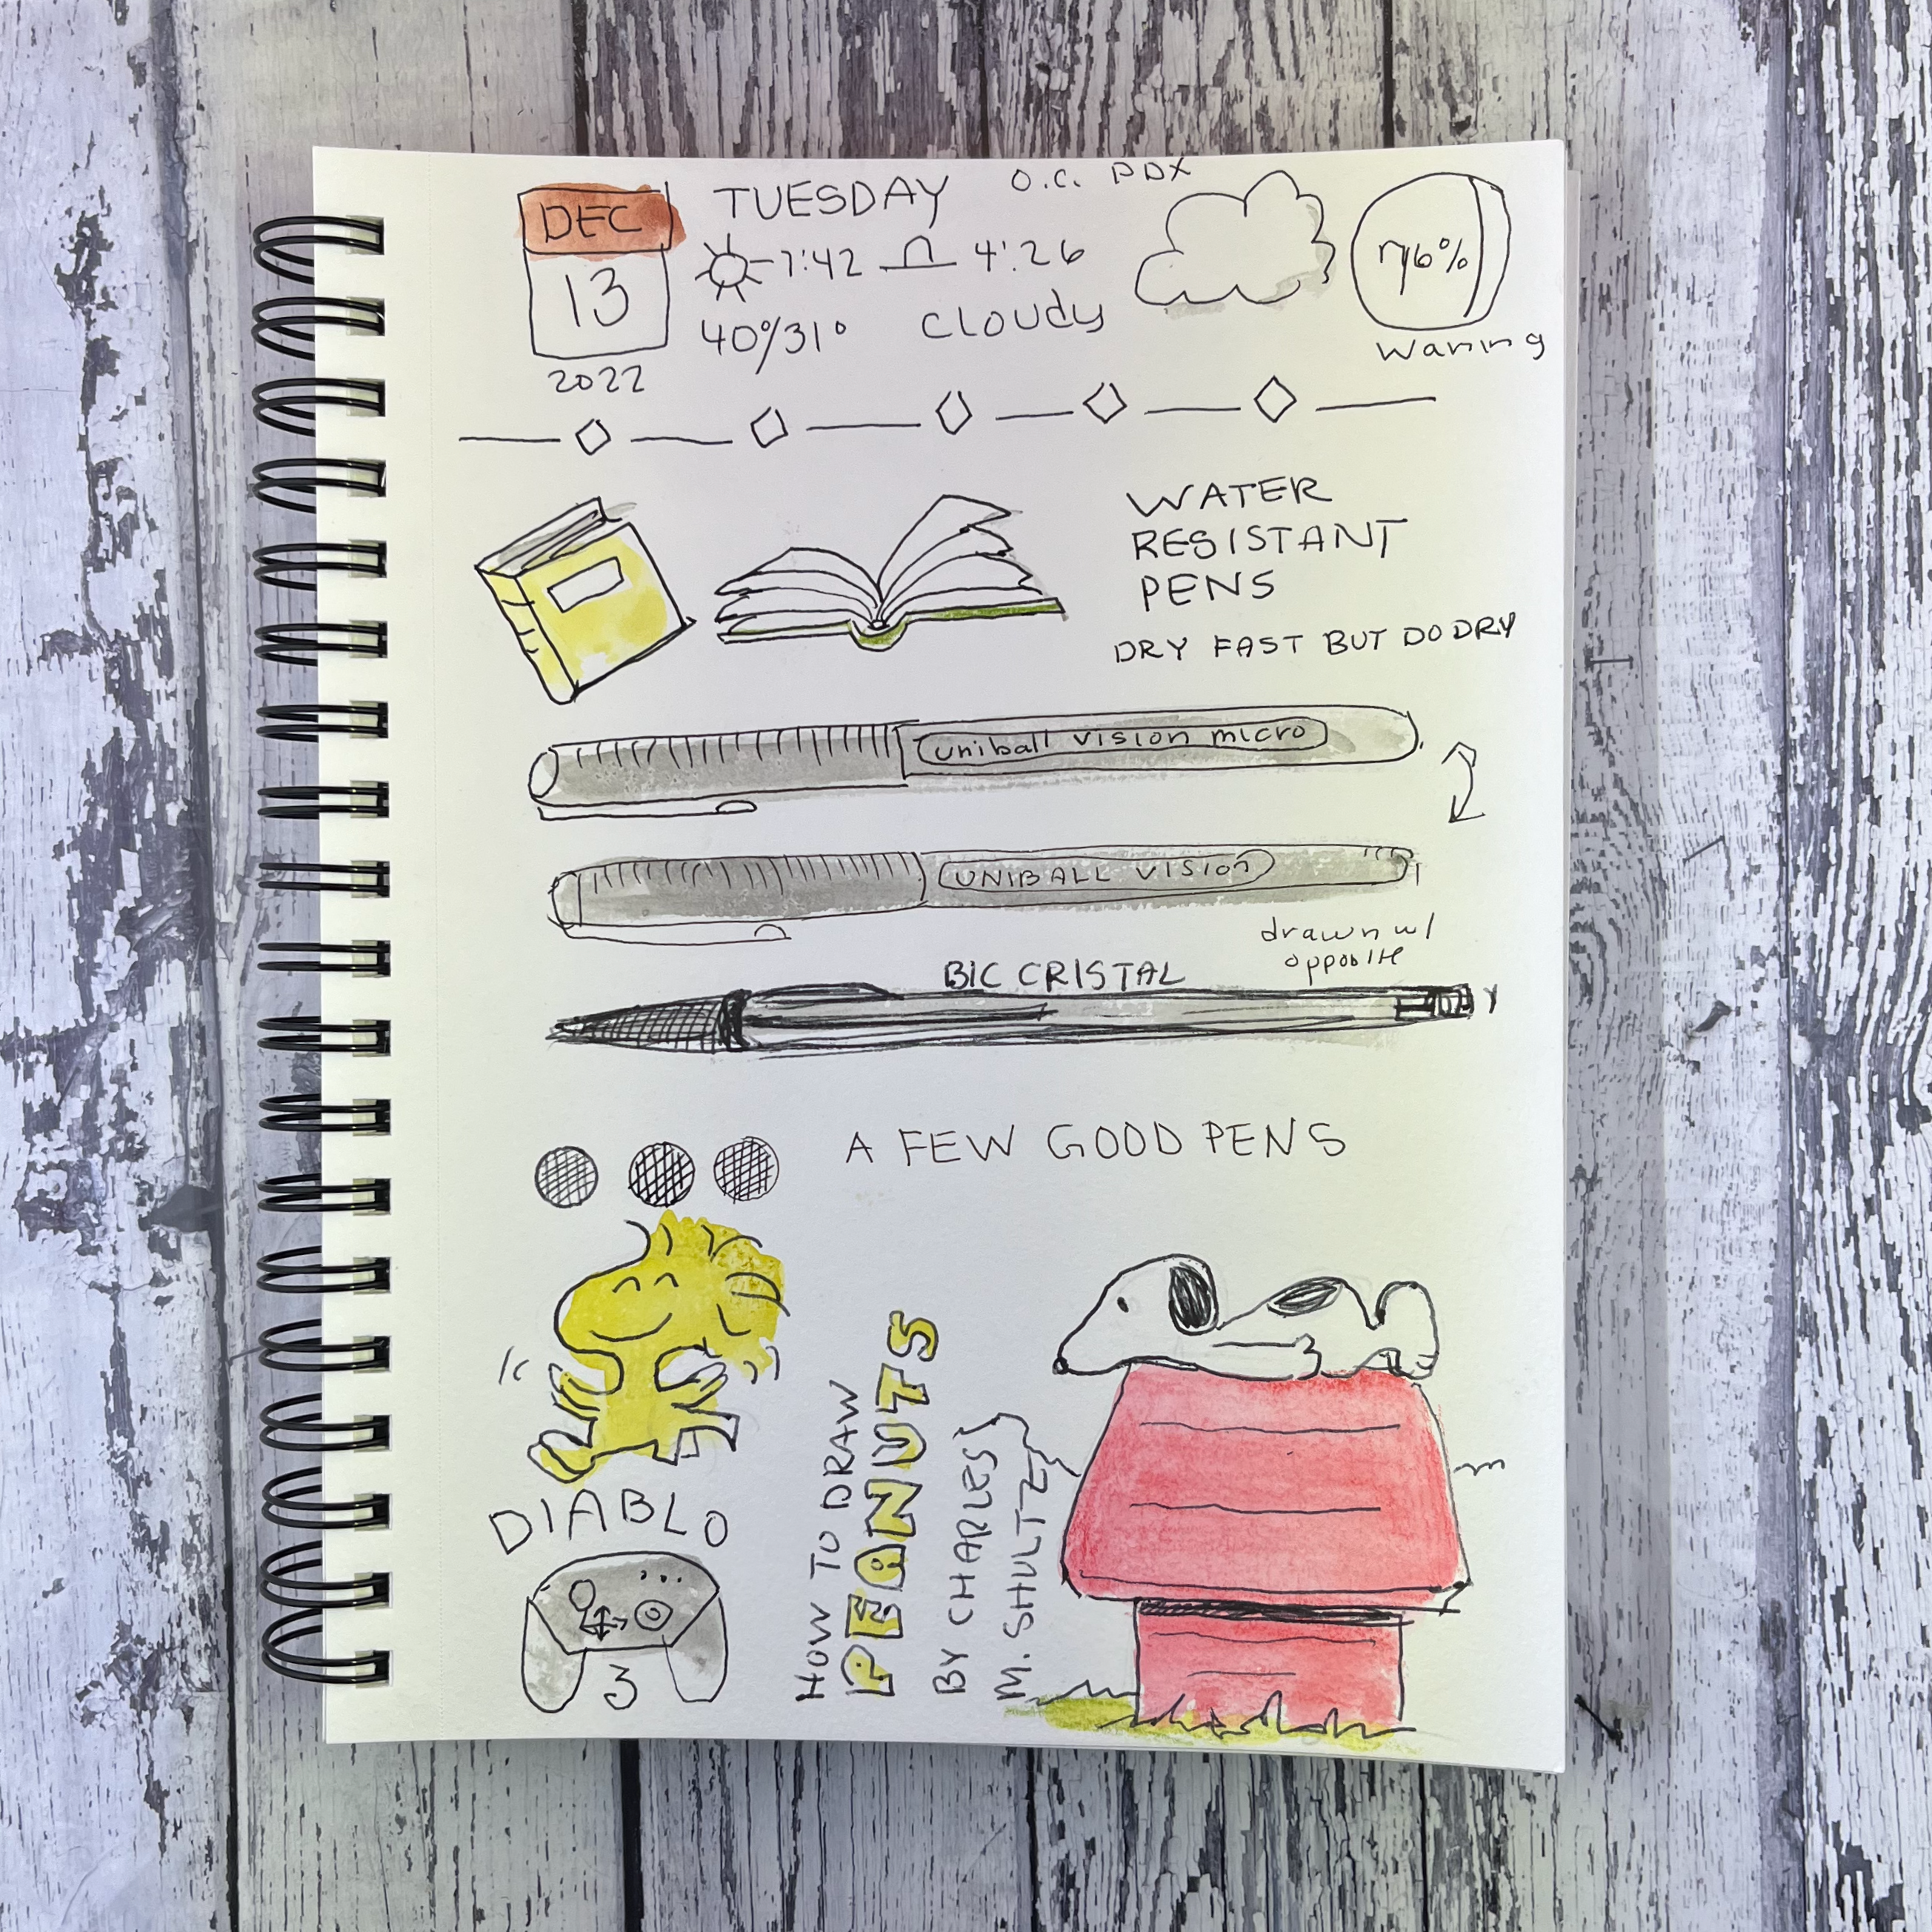 DEC
13
2022
TUESDAY
O.C. PDX
7:42
4:26
40°/31°
CLOUDY
76%
Waning
WATER
RESISTANT
PENS
DRY FAST BUT DO DRY
uniball vision micro
UNIBALL VISION
drawn w/
opposite
BIC CRISTAL
A FEW GOOD PENS
DIABLO
3
HOW TO DRAW
PEANUTS
BY CHARLES
M. SHULTZ